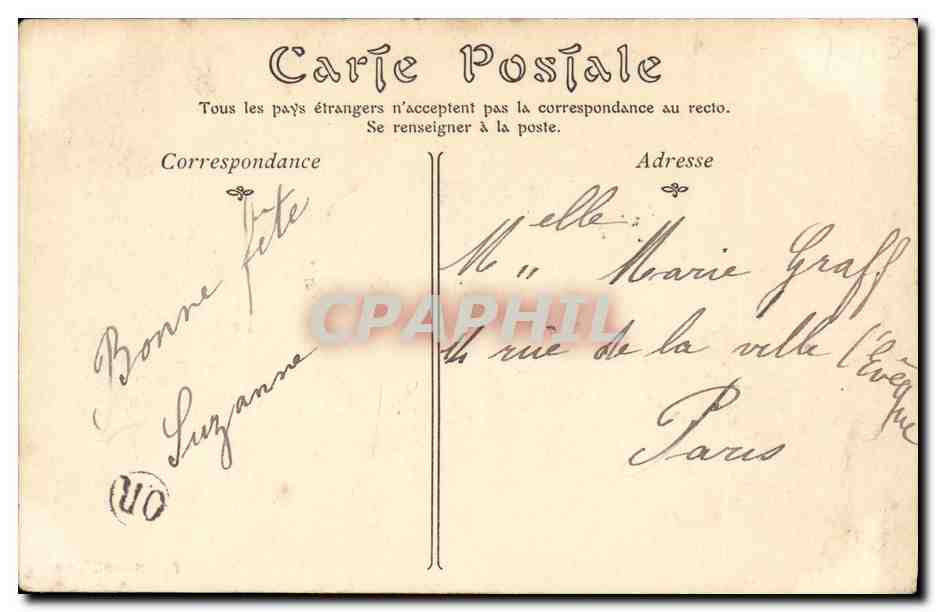 Carte Postale
Tous les pays étrangers n'acceptent pas la correspondance au recto.
Se renseigner à la poste.
Correspondance
Bonne fête
Suzanne
OR
Adresse
Melle Marie Graff
rue de la ville l'Evêque
Paris
CPAPHIL